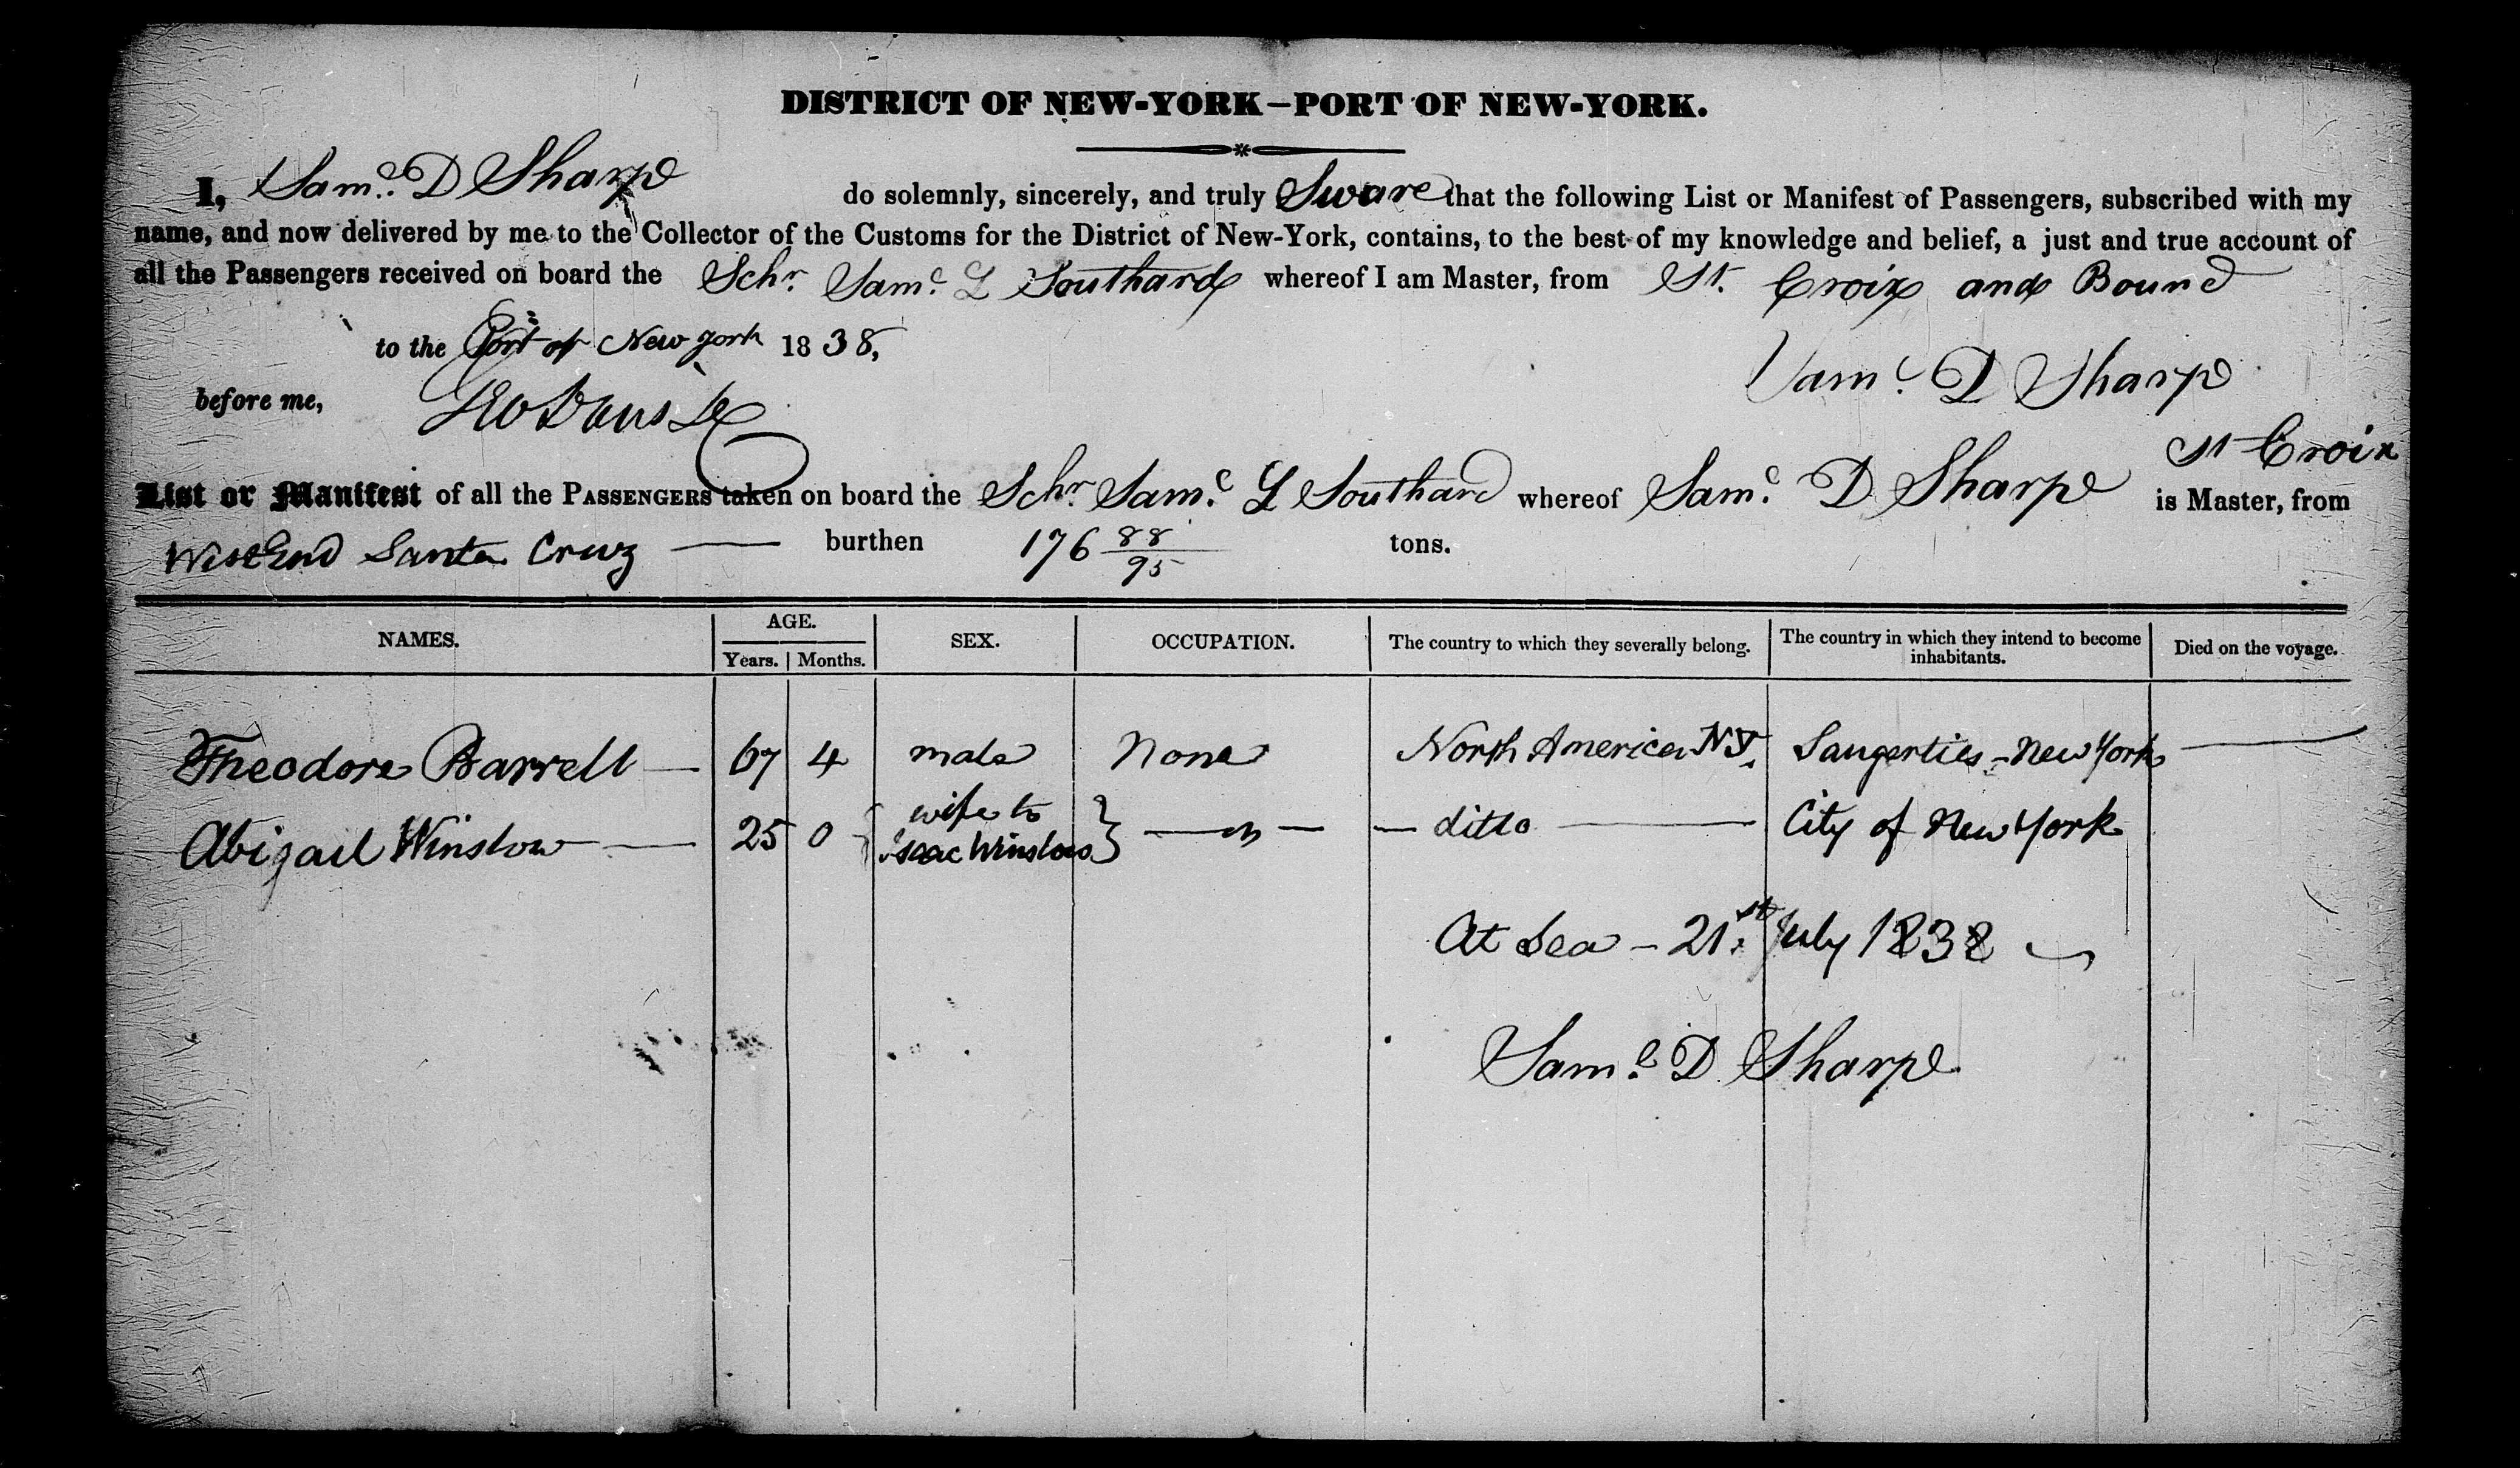 DISTRICT OF NEW-YORK—PORT OF NEW-YORK.
I, Saml. D Sharpe do solemnly, sincerely, and truly Sware that the following List or Manifest of Passengers, subscribed with my
name, and now delivered by me to the Collector of the Customs for the District of New-York, contains, to the best of my knowledge and belief, a just and true account of
all the Passengers received on board the Schr Saml L Southard whereof I am Master, from St. Croix and Bound
to the Port of New york 1838,
Saml D Sharpe
before me,
St Croix
List or Manifest of all the PASSENGERS taken on board the Schr Saml L Southard whereof Saml D Sharpe is Master, from
West End Santa Cruz — burthen 176 88/95 tons.
NAMES. AGE. SEX. OCCUPATION. The country to which they severally belong. The country in which they intend to become inhabitants. Died on the voyage.
Years. Months.
Theodore Barrell — 67 4 male None North America NY. Saugerties - New York —
Abigail Winslow — 25 0 { wife to Isaac Winslow } — — ditto — City of New York
At Sea - 21st July 1838
Saml D Sharpe